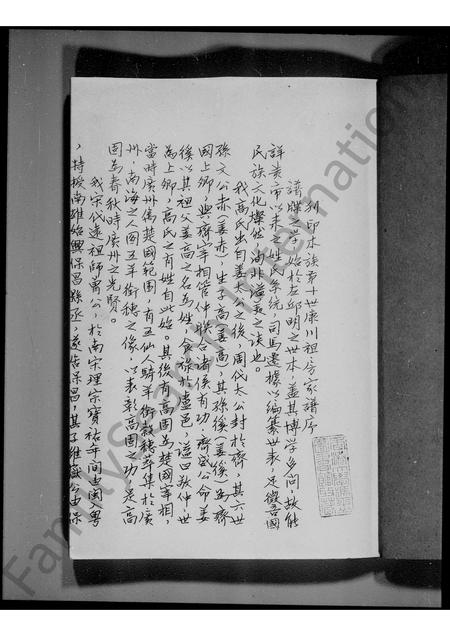 刊印本族第十世康川祖房家譜序
譜牒之學始於左邱明之世本，蓋其博學多聞，故能
詳黃帝以來之姓氏系統，司馬遷據以編纂世表，足徵吾國
民族文化燦然，洵非溢美之談也。
我高氏出自姜太公之後，周代太公封於齊，其六世
孫文公赤（姜赤），生子高（姜高）其孫傒（姜傒）為齊
國上卿，與齊宰相管仲聯合諸侯有功，齊威公命姜
傒以其祖父姜高之名為姓，食祿於盧邑，謚曰敬仲，世
為上卿，高氏之有姓自此始。其後有高固為楚國宰相，
當時廣州屬楚國範圍，有五仙人騎羊銜穀穗萃集於廣
州，南海之人圖五羊銜穗之像，以表彰高固之功，是高
固為春秋時廣州之先賢。
我宋代遠祖師萬公，於南宋理宗寶祐年間由閩入粵
，特授南雄始興保昌縣丞，
FamilySearch International